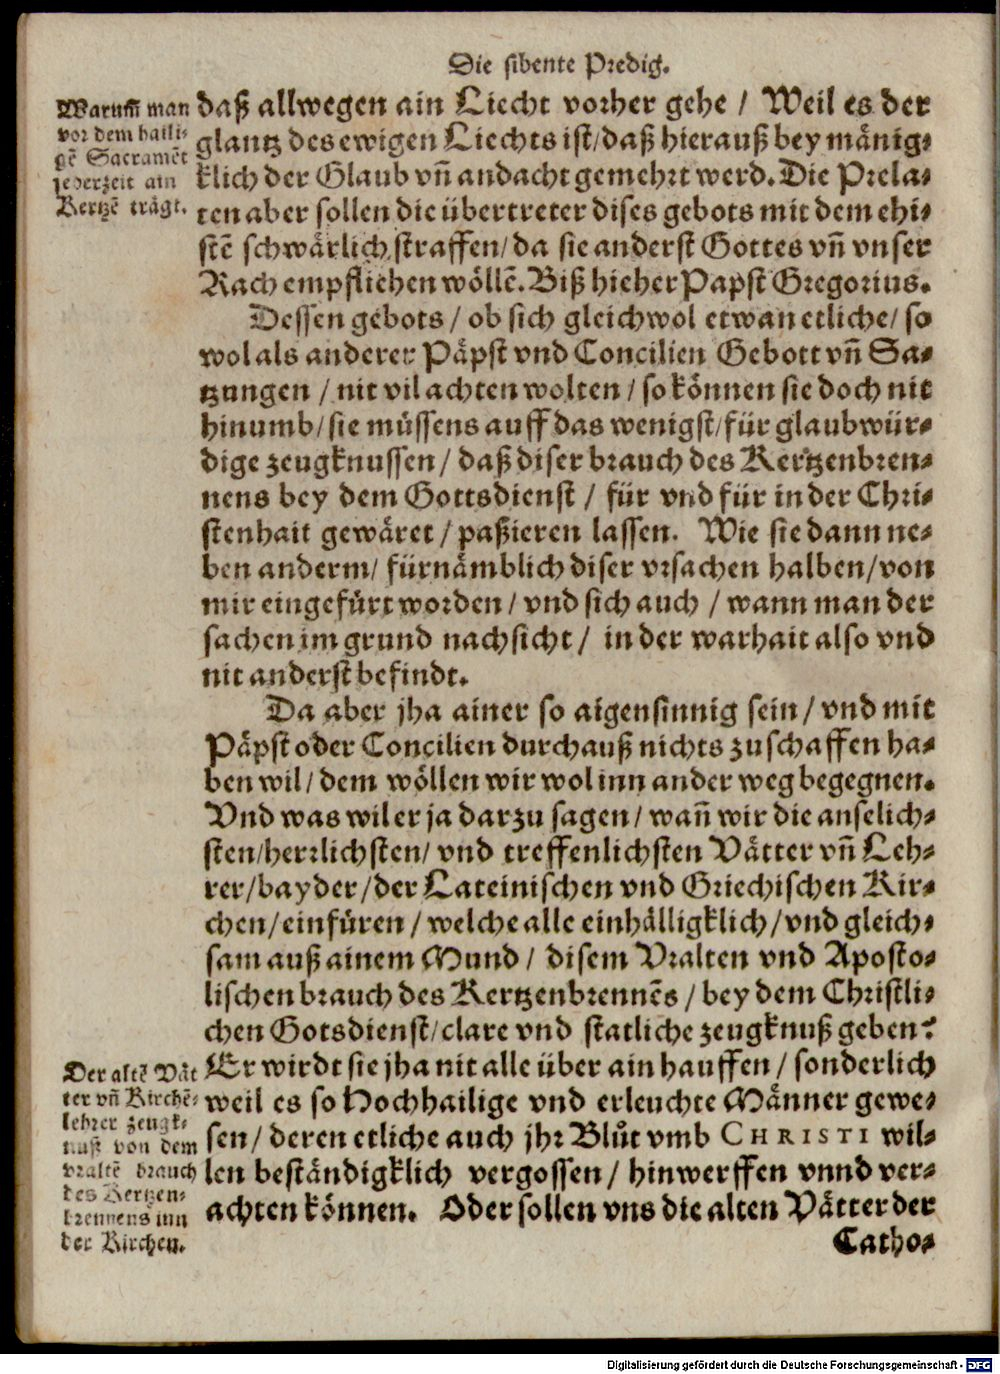 Die sibente Predig.
Warum̃ man
vor dem haili-
gē Sacramēt
jederzeit ain
Kertzē trägt.
daß allwegen ain Liecht vorher gehe / Weil es der
glantz des ewigen Liechts ist / daß hierauß bey mänig-
klich der Glaub vñ andacht gemehrt werd. Die Prela-
ten aber sollen die übertreter dises gebots mit dem ehi-
stē schwärlich straffen / da sie anderst Gottes vñ vnser
Rach empfliehen wöllē. Biß hieher Papst Gregorius.
Dessen gebots / ob sich gleichwol etwan etliche / so
wol als anderer Päpst vnd Concilien Gebott vñ Sa-
tzungen / nit vil achten wolten / so können sie doch nit
hinumb / sie müssens auff das wenigst / für glaubwür-
dige zeugknussen / daß diser brauch des Kertzenbren-
nens bey dem Gottsdienst / für vnd für in der Chri-
stenhait gewäret / paßieren lassen. Wie sie dann ne-
ben anderm / fürnämblich diser vrsachen halben / von
mir eingefürt worden / vnd sich auch / wann man der
sachen im grund nachsicht / in der warhait also vnd
nit anderst befindt.
Da aber jha ainer so aigensinnig sein / vnd mit
Päpst oder Concilien durchauß nichts zuschaffen ha-
ben wil / dem wöllen wir wol inn ander weg begegnen.
Vnd was wil er ja darzu sagen / wañ wir die anselich-
sten / herrlichsten / vnd treffenlichsten Vätter vñ Leh-
rer / bayder / der Lateinischen vnd Griechischen Kir-
chen / einfüren / welche alle einhälligklich / vnd gleich-
sam auß ainem Mund / disem Vralten vnd Aposto-
lischen brauch des Kertzenbrennēs / bey dem Christli-
chen Gotsdienst / clare vnd statliche zeugknuß geben?
Er wirdt sie jha nit alle über ain hauffen / sonderlich
weil es so Hochhailige vnd erleuchte Männer gewe-
sen / deren etliche auch jhr Blůt vmb CHRISTI wil-
len beständigklich vergossen / hinwerffen vnnd ver-
achten können. Oder sollen vns die alten Vätter der
Der altē Vät
ter vñ Kirchē-
lehrer zeugk-
nuß von dem
vraltē brauch
des Kertzen-
brennens inn
der Kirchen.
Catho-
Digitalisierung gefördert durch die Deutsche Forschungsgemeinschaft - DFG